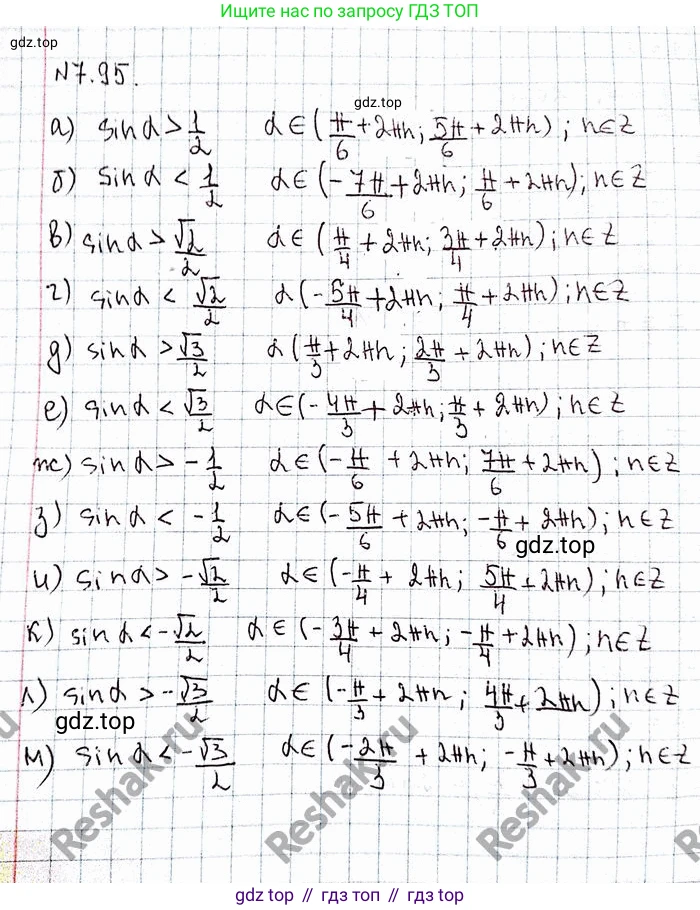 Ищите нас по запросу ГДЗ ТОП
gdz.top
N7.95.
gdz.top
а) sinα > 1/2 α∈(π/6 + 2πn; 5π/6 + 2πn); n∈Z
б) sinα < 1/2 α∈(-7π/6 + 2πn; π/6 + 2πn); n∈Z
в) sinα > √2/2 α∈(π/4 + 2πn; 3π/4 + 2πn); n∈Z
г) sinα < √2/2 α(-5π/4 + 2πn; π/4 + 2πn); n∈Z
д) sinα > √3/2 α(π/3 + 2πn; 2π/3 + 2πn); n∈Z
е) sinα < √3/2 α∈(-4π/3 + 2πn; π/3 + 2πn); n∈Z
ж) sinα > -1/2 α∈(-π/6 + 2πn; 7π/6 + 2πn); n∈Z
з) sinα < -1/2 α∈(-5π/6 + 2πn; -π/6 + 2πn); n∈Z
gdz.top
и) sinα > -√2/2 α∈(-π/4 + 2πn; 5π/4 + 2πn); n∈Z
к) sinα < -√2/2 α∈(-3π/4 + 2πn; -π/4 + 2πn); n∈Z
л) sinα > -√3/2 α∈(-π/3 + 2πn; 4π/3 + 2πn); n∈Z
gdz.top
м) sinα < -√3/2 α∈(-2π/3 + 2πn; -π/3 + 2πn); n∈Z
Reshak.ru
Reshak.ru
Reshak.ru
gdz top // гдз топ // gdz.top